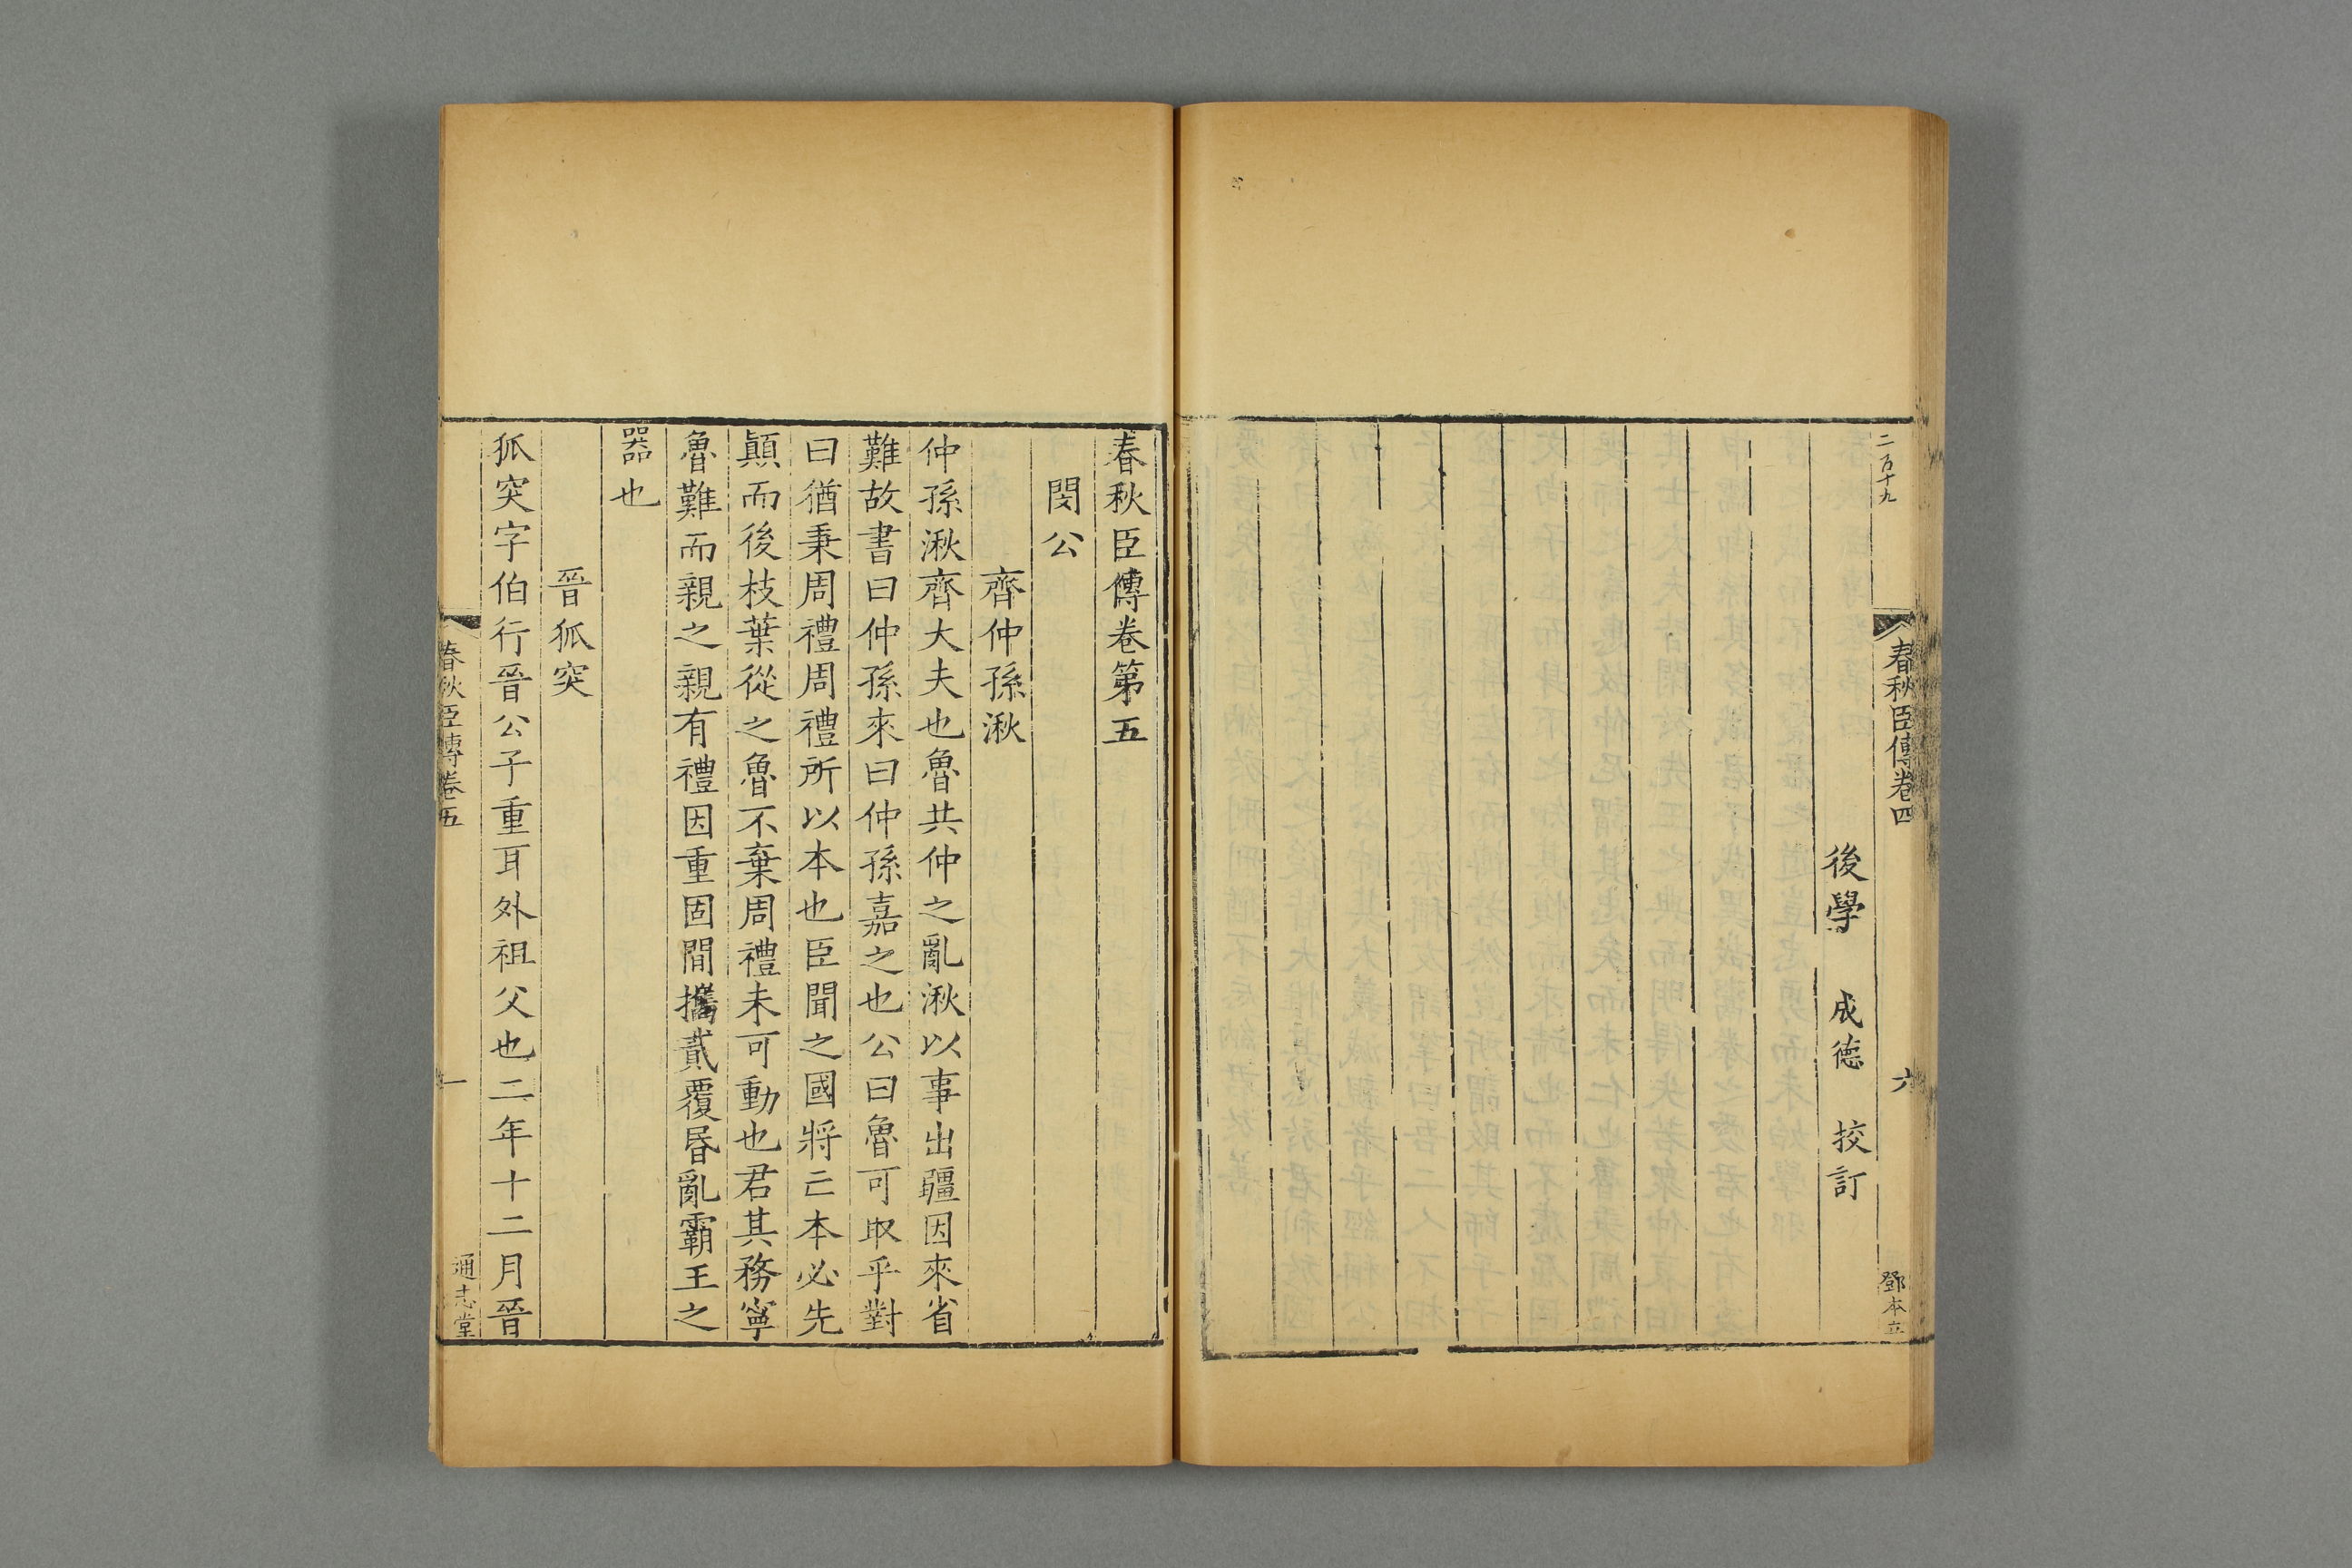 二百十九
春秋臣傳卷四
六
鄧本立
後學　成德　挍訂
春秋臣傳卷第五
閔公
齊仲孫湫
仲孫湫齊大夫也魯共仲之亂湫以事出疆因來省
難故書曰仲孫來曰仲孫嘉之也公曰魯可取乎對
曰猶秉周禮周禮所以本也臣聞之國將亡本必先
顛而後枝葉從之魯不棄周禮未可動也君其務寧
魯難而親之親有禮因重固閒攜貳覆昬亂霸王之
器也
晉狐突
狐突字伯行晉公子重耳外祖父也二年十二月晉
春秋臣傳卷五
一
通志堂